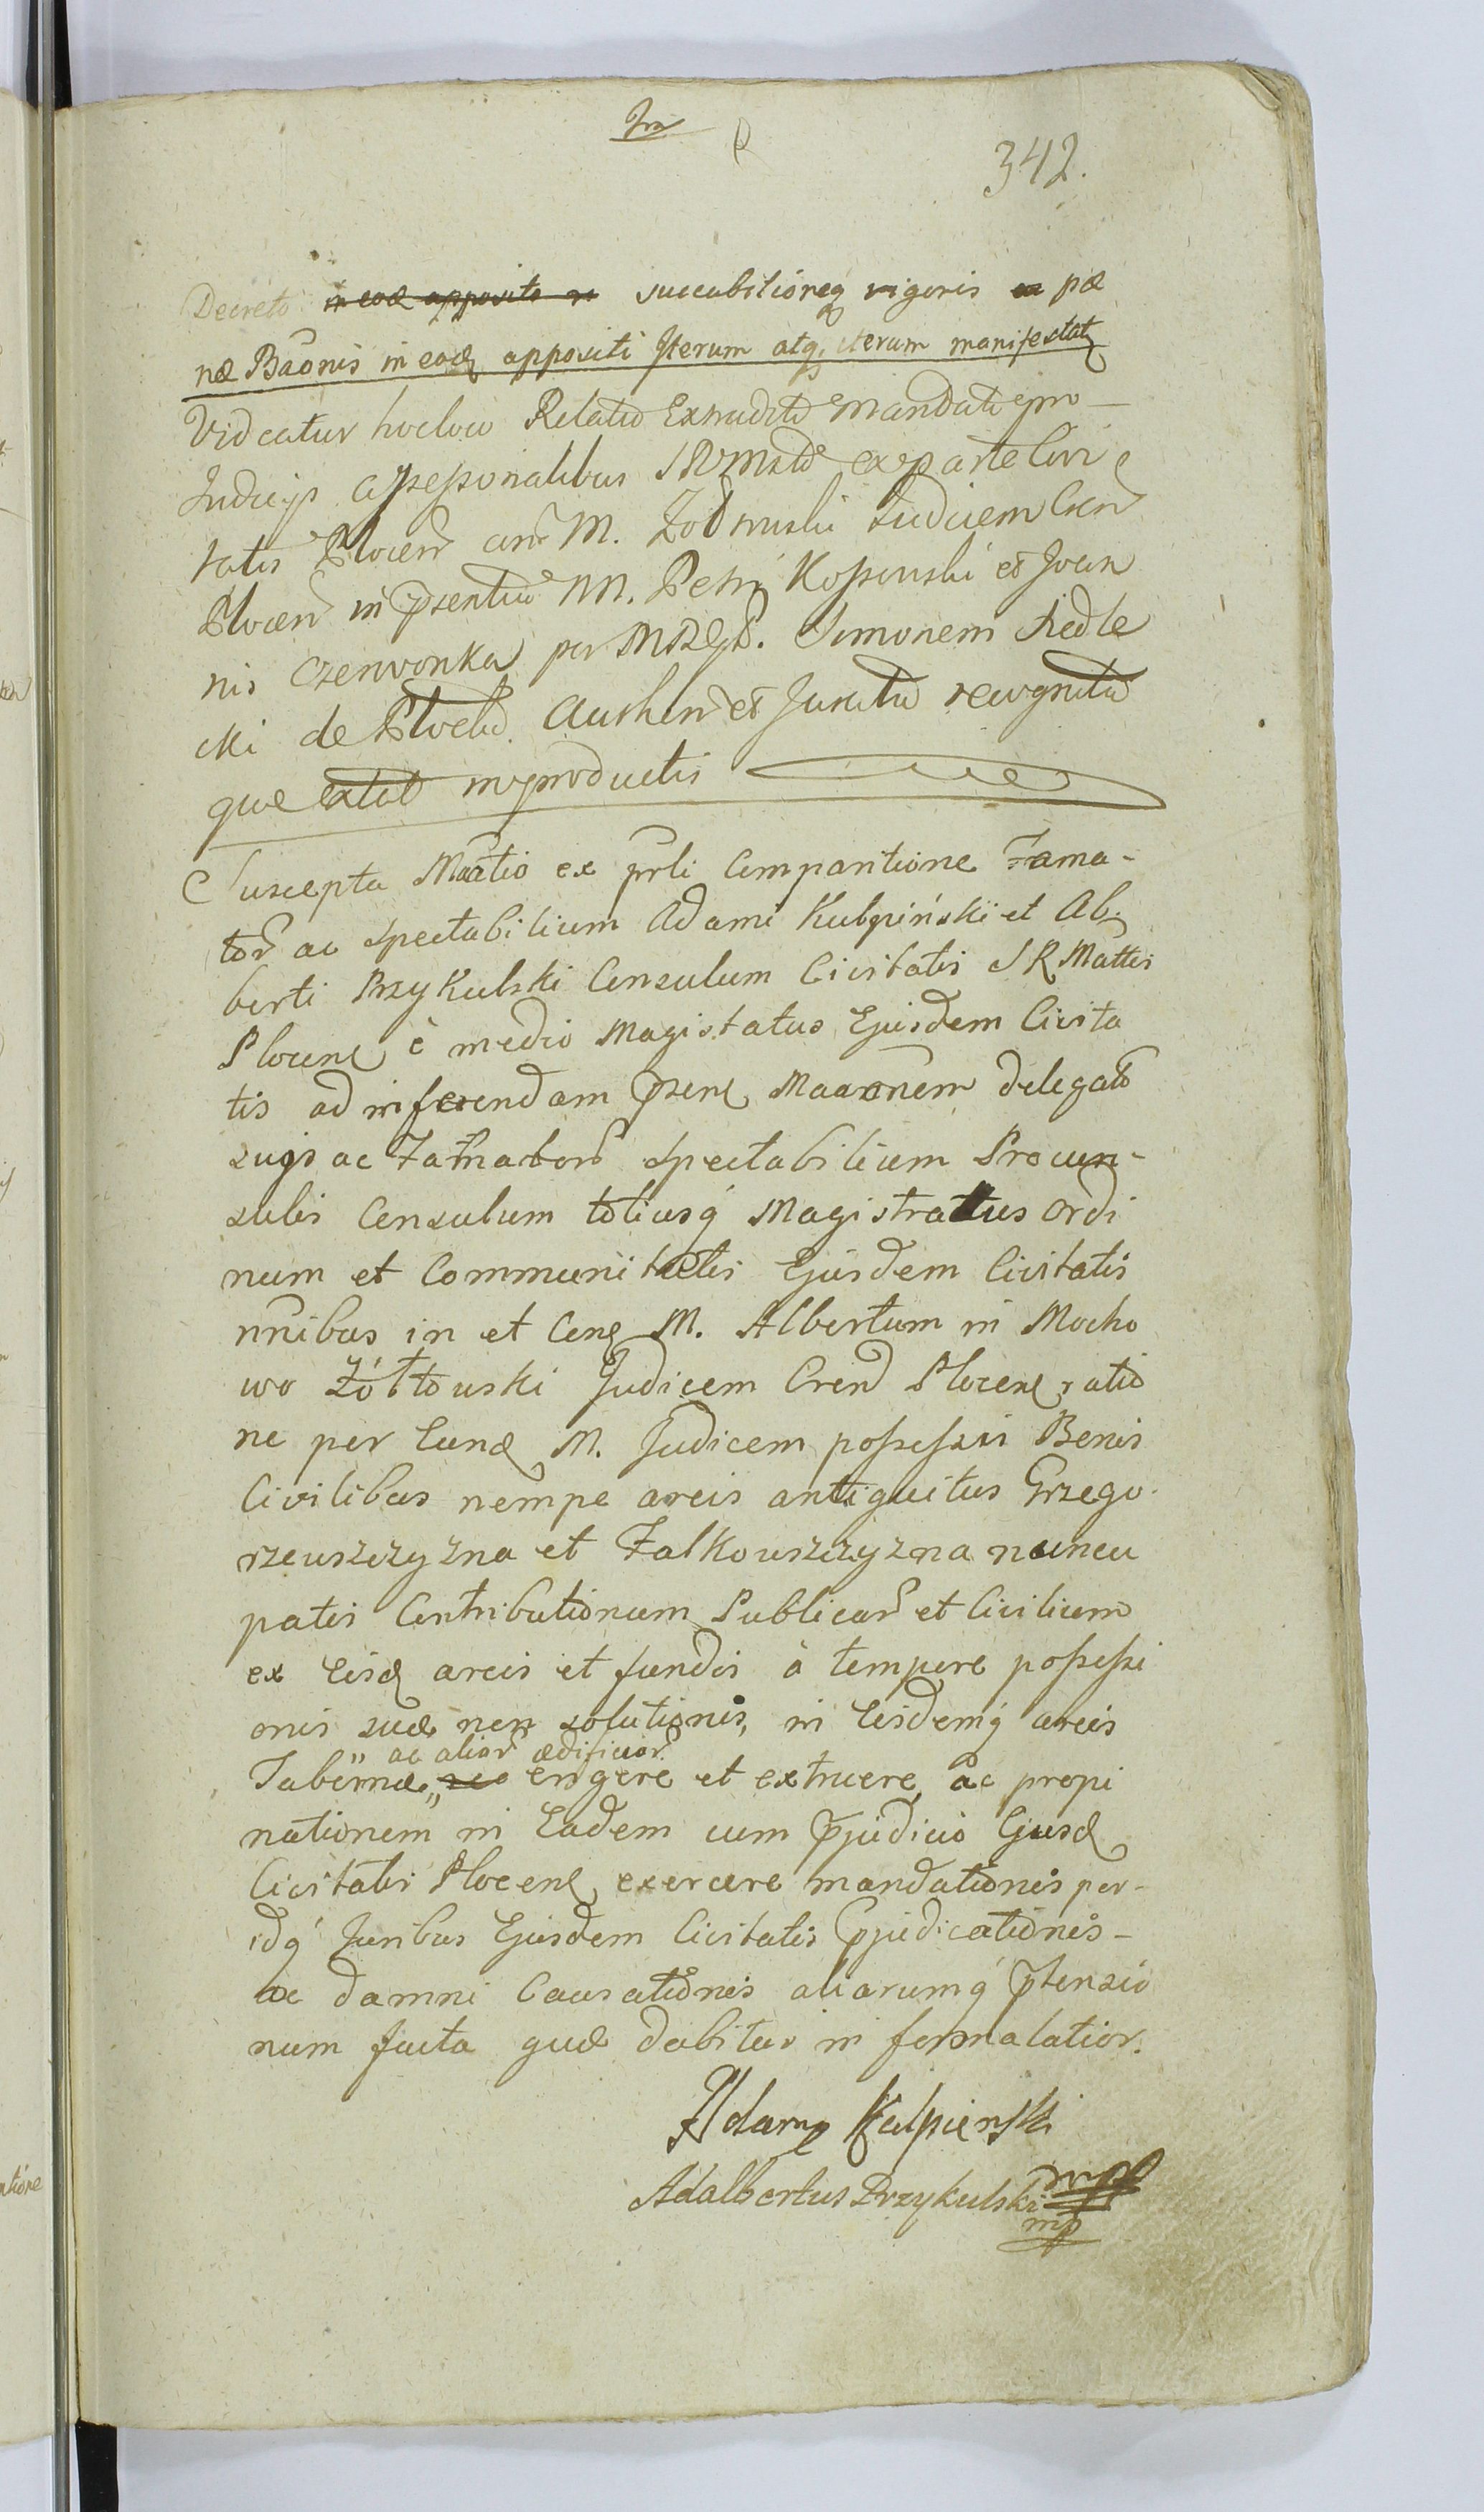 342.
Decreto in eod apposito succubitioneq vigoris pœ
næ Baonis in eod appositi Iterum atq iterum manifestat
Videatur hocloco Relatio Extraditi Mandati pro
Judicijs assessorialibus SRMstis ex parte Civi
tatis Plocen con M. Żołtowski Judicem Cren
Plocen in psentia MM. Petri Kossowski et Joan
nis Czerwonka per MRgd. Simonem Siedle
cki de Plocko Authen et Juratu recognita
quæ extat in productis
Suscepta Maatio ex prli Comparitione Fama-
tor ac Spectabilium Adami Kulpiński et Al
berti Przykulski Consulum Civitatis SRMattis
Plocens è medio Magistatus Ejusdem Civita
tis ad inferendam psens Maaonem delegator
suijs ac Famator Spectabilium Procon-
sulis Consulum totiusq Magistratus Ordi
num et Communitatis Ejusdem Civitatis
nnibus in et Cong M. Albertum in Mocho
wo Żółtowski Judicem Crend Plocens ratio
ne per Eund M. Judicem possessis Bonis
Civilibus nempe areis antiquitus Grzego-
rzewszczyzna et Falkowszczyzna nuncu
patis Contributionum Publicar et Civilium
ex Eisd areis et fundis à tempore possessi
onis suæ non solutionis, in Eisdemq areis
ac alior ædificior
Tabernæ erigere et extruere, ac propi
nationem in Eadem cum pjudicio Ejusd
Civitatis Plocens exercere mandationis per-
idq Juribus Ejusdem Civitatis pjudicationis-
ac damni Causationis aliarumq ptensio
num facta quæ dabitur in forma latior.
Adam Kulpienski
Adalbertus Przykulski mp
mp